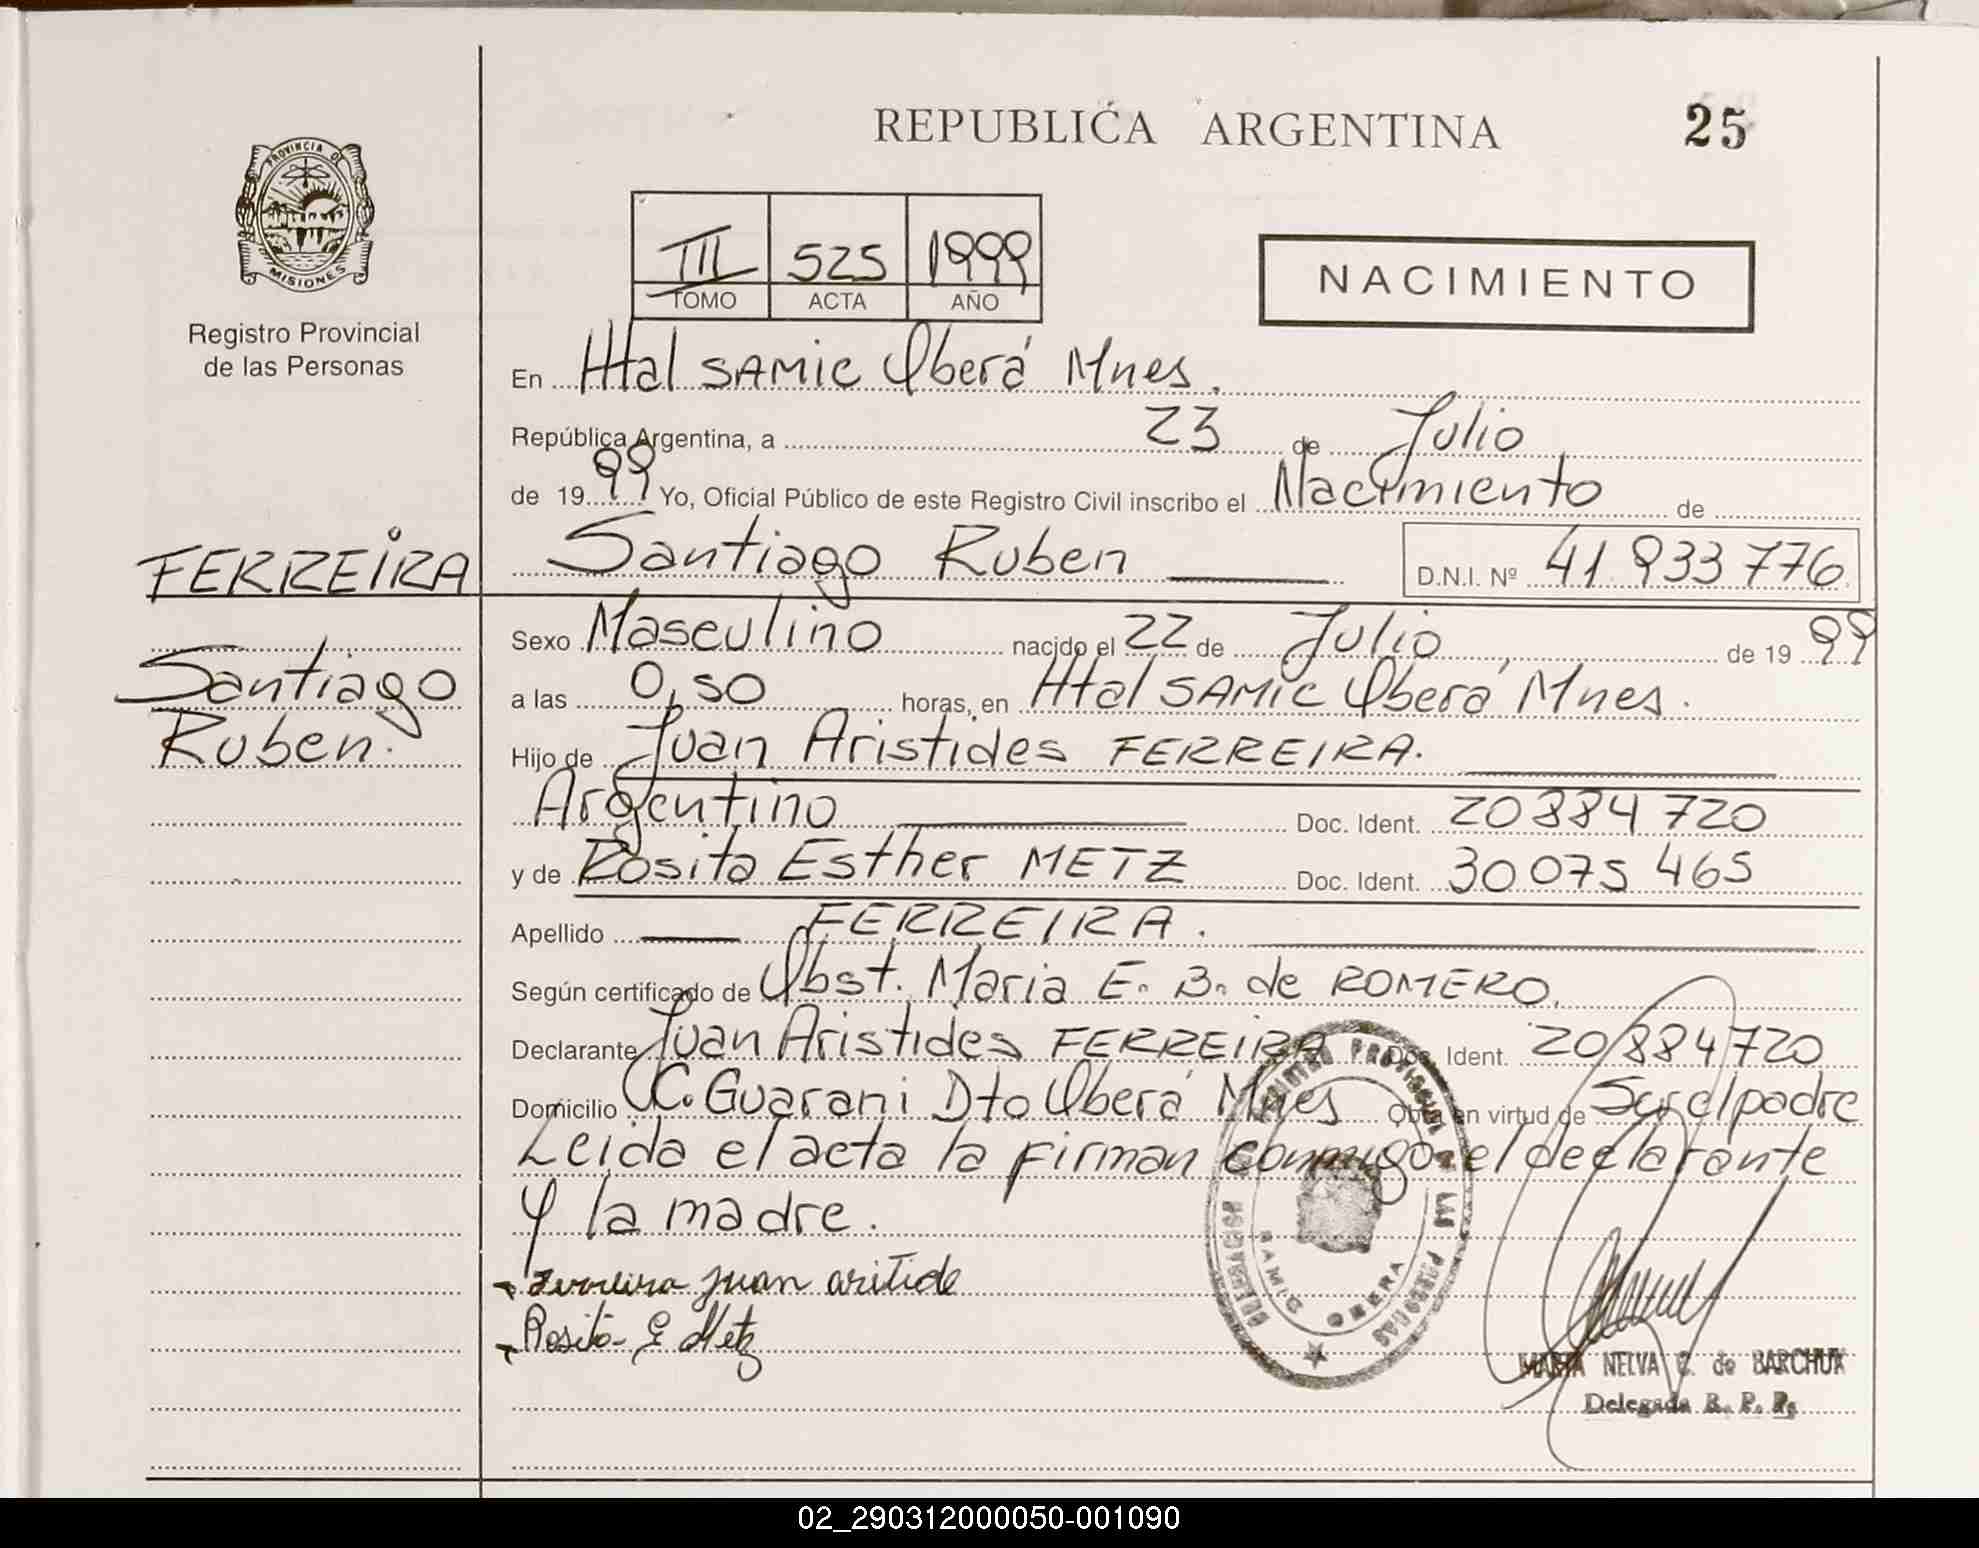 REPUBLICA ARGENTINA
25
PROVINCIA DE
MISIONES
Registro Provincial
de las Personas
III 525 1999
TOMO ACTA AÑO
NACIMIENTO
En Htal SAMIC Oberá Mnes.
República Argentina, a 23 de Julio
de 1999 Yo, Oficial Público de este Registro Civil inscribo el Nacimiento de
FERREIRA
Santiago Ruben D.N.I. Nº 41 933 776
Santiago
Ruben.
Sexo Masculino nacido el 22 de Julio de 1999
a las 0,50 horas, en Htal SAMIC Oberá Mnes.
Hijo de Juan Aristides FERREIRA.
Argentino Doc. Ident. 20884720
y de Rosita Esther METZ Doc. Ident. 30075465
Apellido FERREIRA.
Según certificado de Obst. Maria E. B. de ROMERO.
Declarante Juan Aristides FERREIRA Doc. Ident. 20884720
Domicilio C. Guarani Dto Oberá Mnes Obra en virtud de Ser el padre
Leida el acta la firman conmigo el declarante
y la madre.
Ferreira Juan aritide
Rosita E Metz
DELEGACION REGISTRO PROVINCIAL DE LAS PERSONAS
SAMIC OBERA
MARIA NELVA C. de BARCHUK
Delegada R. P. P.
02_290312000050-001090